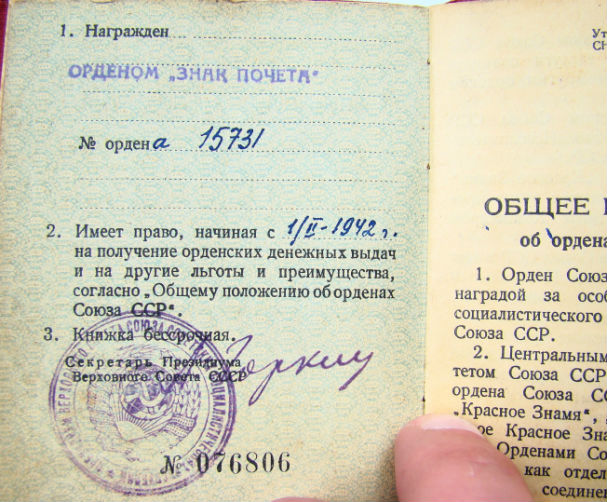 1. Награжден
ОРДЕНОМ „ЗНАК ПОЧЕТА“
№ ордена 15731
2. Имеет право, начиная с 1/II-1942 г.
на получение орденских денежных выдач
и на другие льготы и преимущества,
согласно „Общему положению об орденах
Союза ССР“.
3. Книжка бессрочная.
Секретарь Президиума
Верховного Совета СССР
Горкин
№ 076806
Ут
ОБЩЕЕ
об ордена
1. Орден Союз
наградой за особ
социалистического
Союза ССР.
2. Центральным
тетом Союза ССР
ордена Союза СС
„Красное Знамя“,
ое Красное Зна
Орденами Со
как отдел
соединен